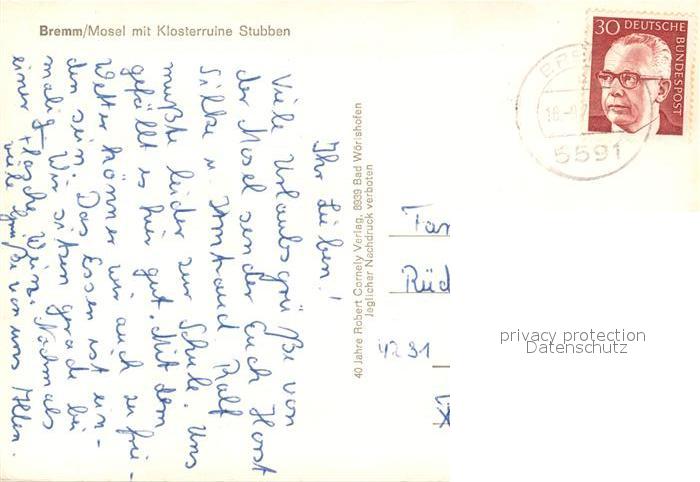 Bremm/Mosel mit Klosterruine Stubben
30 DEUTSCHE BUNDESPOST
5591
Ihr Lieben!
Viele Urlaubsgrüße von
der Mosel senden Euch Horst
Silke u. Ralf
mußte leider zur Schule. Uns
gefällt es hier gut. Mit dem
Wetter können wir auch zufrie-
den sein. Das Essen ist ein-
malig. Wir sitzen gerade bei
einer Flasche Wein. Nochmals
viele Grüße von uns Allen.
40 Jahre Robert Cornely Verlag, 8939 Bad Wörishofen
Jeglicher Nachdruck verboten
Fam
Rüd
4231
privacy protection
Datenschutz